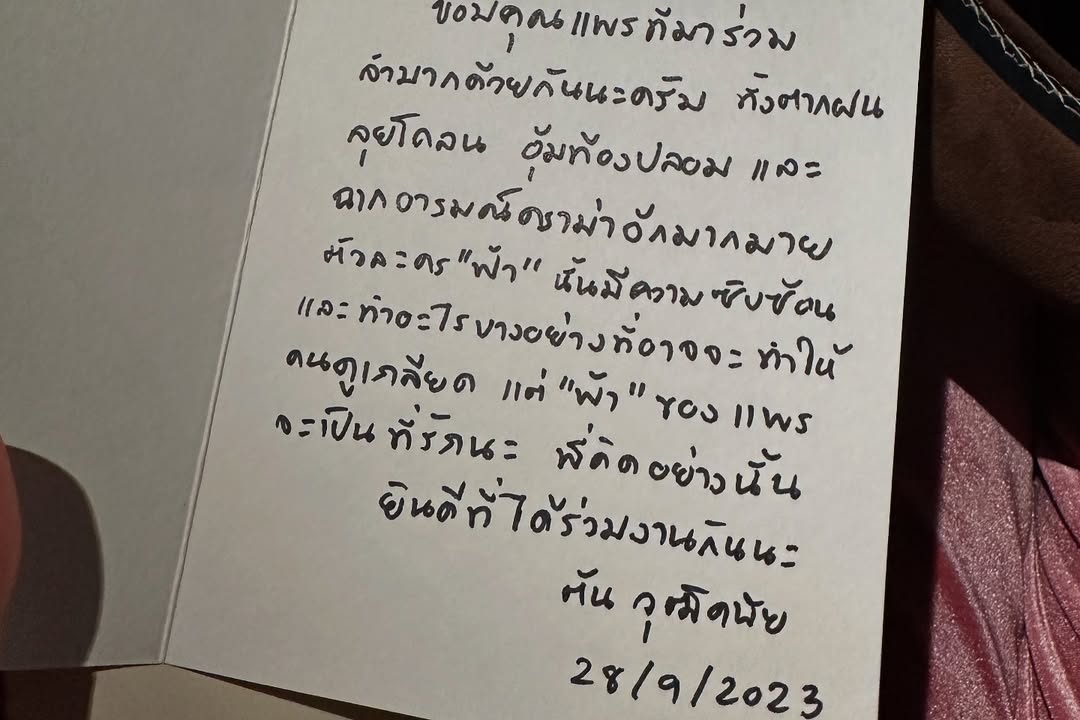 ขอบคุณแพรที่มาร่วม
ลำบากด้วยกันนะครับ ทั้งตากฝน
ลุยโคลน อุ้มท้องปลอม และ
ฉากอารมณ์ดราม่าอีกมากมาย
ตัวละคร "ฟ้า" นั้นมีความซับซ้อน
และทำอะไรบางอย่างที่อาจจะทำให้
คนดูเกลียด แต่ "ฟ้า" ของแพร
จะเป็นที่รักนะ พี่คิดอย่างนั้น
ยินดีที่ได้ร่วมงานกันนะ
ตัน วุฒิดนัย
28/9/2023